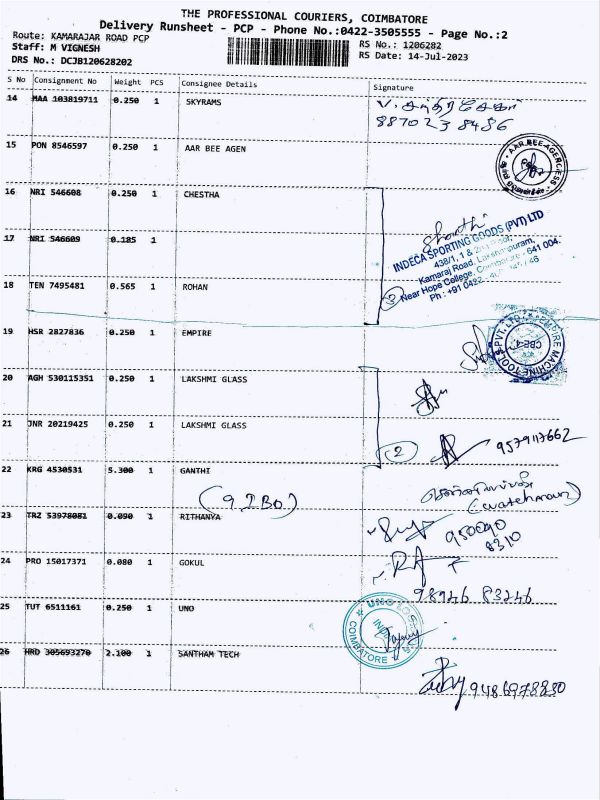 THE PROFESSIONAL COURIERS, COIMBATORE
Delivery Runsheet - PCP - Phone No.:0422-3505555 - Page No.:2
Route: KAMARAJAR ROAD PCP
RS No.: 1206282
Staff: M VIGNESH
RS Date: 14-Jul-2023
DRS No.: DCJB120628202
S No Consignment No Weight PCS Consignee Details Signature
14 MAA 103819711 0.250 1 SKYRAMS
887023 8486
15 PON 8546597 0.250 1 AAR BEE AGEN
AAR BEE AGENCIESS
16 NRI 546608 0.250 1 CHESTHA
INDECA SPORTING GOODS (PVT) LTD
438/1, 1 & 2nd Floor,
Kamaraj Road, Lakshmipuram,
Near Hope College, Coimbatore - 641 004.
17 NRI 546609 0.185 1
3
18 TEN 7495481 0.565 1 ROHAN
19 HSR 2827836 0.250 1 EMPIRE
EMPIRE MACHINE TOOLS PVT. LTD
CBE-4
20 AGH 530115351 0.250 1 LAKSHMI GLASS
21 JNR 20219425 0.250 1 LAKSHMI GLASS
2
9579117662
22 KRG 4530531 5.300 1 GANTHI
(watchman)
23 TRZ 53978081 0.090 1 RITHANYA
950090
8310
24 PRO 15017371 0.080 1 GOKUL
98946 83246
25 TUT 6511161 0.250 1 UNO
COIMBATORE
26 HRD 305693270 2.100 1 SANTHAM TECH
9486978830